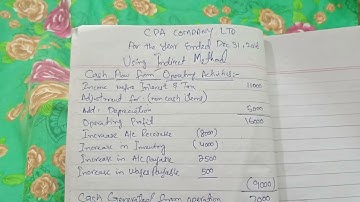 CPA COMPANY LTD
For the Year Ended Dec 31, 
Using Indirect Method
Cash Flow from Operating Activities:-
Income before Interest & Tax 11000
Adjustment for: (non cash items)
Add: Depreciation 5000
Operating Profit 16000
Increase A/c Receivable (8000)
Increase in Inventory (4000)
Increase in A/c payable 2500
Increase in Wages payable 500
(9000)
Cash Generated from operation 7000